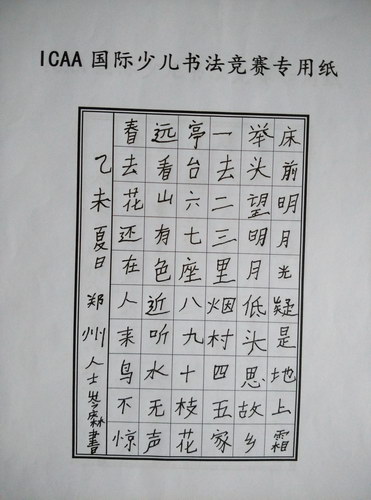 ICAA 国际少儿书法竞赛专用纸
床前明月光疑是地上霜
举头望明月低头思故乡
一去二三里烟村四五家
亭台六七座八九十枝花
远看山有色近听水无声
春去花还在人来鸟不惊
乙未夏日 郑州人士 森書